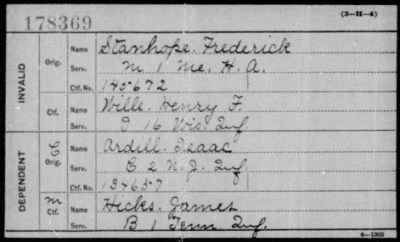 178369
(3-H-4)
INVALID
Orig.
Name Stanhope, Frederick
Serv. M 1 Me. H. A.
Ctf. No. 145672
Ctf.
Name Wille, Henry F.
Serv. I 16 Wis. Inf.
DEPENDENT
C
Orig.
Name Ardill, Isaac
Serv. C. 2 N. J. Inf
Ctf. No. 134657
m
Ctf.
Name Hicks, James
Serv. B 1 Tenn. Inf.
6-1903